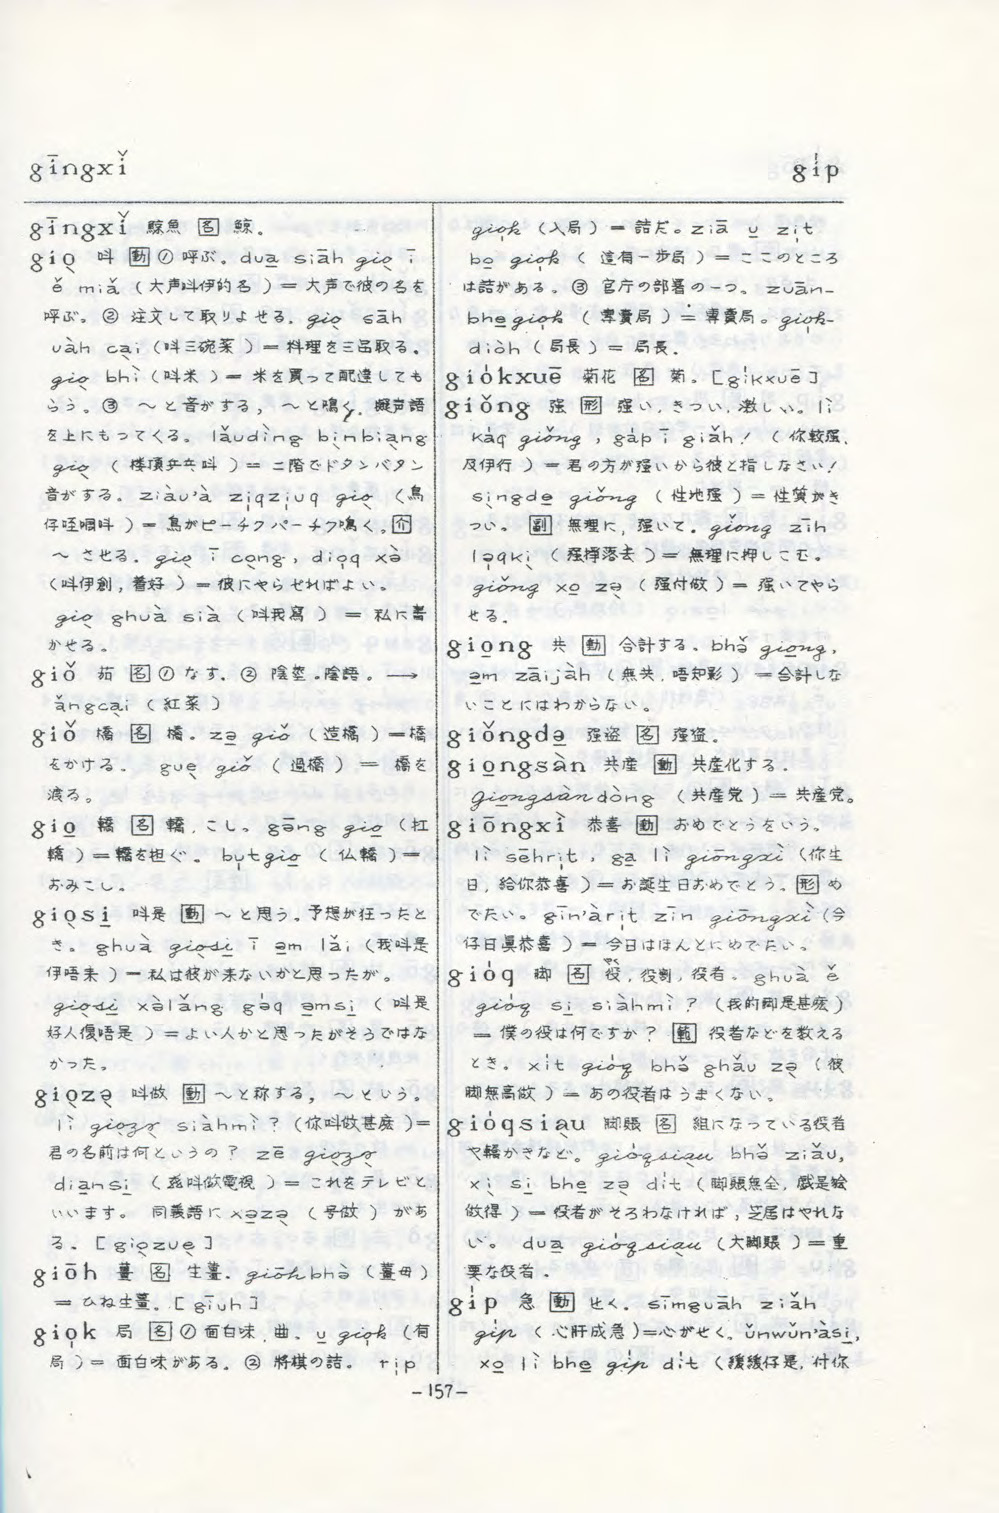 gīngxǐ
gi̍p
gīngxǐ 鯨魚 [名] 鯨。
gio̱ 叫 [動] ① 呼ぶ。dua̱ siāh gio̱ ī
ě miǎ (大声叫伊的名) = 大声で彼の名を
呼ぶ。② 注文して取りよせる. gio̱ sāh
uàh ca̱i (叫三碗菜) = 料理を三皿取る。
gio̱ bhì (叫米) = 米を買って配達しても
らう。③ 〜と音がする, 〜と鳴く. 擬声語
を上にもってくる。lǎudìng bi̱nbia̱ng
gio̱ (楼頂乒乓叫) = 二階でドタンバタン
音がする。ziàu'à zi̱qziuq gio̱ (鳥
仔唖啁叫) = 鳥がピーチクパーチク鳴く。[介]
〜させる. gio̱ ī co̱ng, dio̱q xə̀
(叫伊創, 着好) = 彼にやらせればよい。
gio̱ ghuà sià (叫我寫) = 私に書
かせる。
giǒ 茄 [名] ① なす. ② 陰莖.陰語。→
ǎngca̱i (紅菜)
giǒ 橋 [名] 橋. zə giǒ (造橋) = 橋
をかける。gue̱ giǒ (過橋) = 橋を
渡る。
gio̱ 轎 [名] 轎, こし。gāng gio̱ (扛
轎) = 轎を担ぐ。bu̍tgio̱ (仏轎) =
おみこし。
gio̱si̱ 叫是 [動] 〜と思う. 予想が狂ったと
き。ghuà gio̱si̱ ī əm lǎi (我叫是
伊唔来) = 私は彼が来ないかと思ったが。
gio̱si̱ xə̀lǎng gə̍q əmsi̱ (叫是
好人復唔是) = よい人かと思ったがそうではな
かった。
gio̱zə̱ 叫做 [動] 〜と称する, 〜という。
lì gio̱zə̱ siàhmì? (你叫做甚麽) =
君の名前は何というの? zē gio̱zə̱
dia̱nsi̱ (玆叫做電視) = これをテレビと
いいます。 同義語に xə̱zə̱ (号做) があ
る。[gio̱zue̱]
giōh 薑 [名] 生薑. giōhbhə̀ (薑母)
= ひね生薑. [giuh]
gio̍k 局 [名] ① 面白味. 曲. u̱ gio̍k (有
局) = 面白味がある。② 將棋の詰。ri̍p
gio̍k (入局) = 詰だ。zià u̱ zi̍t
bo̱ gio̍k (這有一歩局) = ここのところ
は詰がある。③ 官庁の部署の一つ。zuān-
bhe̱gio̍k (専賣局) = 専賣局。gio̍k-
diòh (局長) = 局長.
giókxuē 菊花 [名] 菊。[gi̍kxuē]
giǒng 强 [形] 强い, きつい, 激しい。lì
kàq giǒng, gáp ī giàh! (你較强,
及伊行) = 君の方が强いから彼と指しなさい!
singde̱ giǒng (性地强) = 性質がき
つい。[副] 無理に, 强いて. giǒng zih
lə̍qki̱ (强擠落去) = 無理に押しこむ。
giǒng xo̱ zə̱ (强付做) = 强いてやら
せる.
gio̱ng 共 [動] 合計する. bhǒ gio̱ng,
əm zāijàh (無共, 唔知影) = 合計しな
いことにはわからない。
giǒngdə̱ 强盗 [名] 强盗.
gio̱ngsàn 共産 [動] 共産化する.
gio̱ngsàndòng (共産党) = 共産党。
giōngxì 恭喜 [動] おめでとうをいう。
lì sēhri̍t, ga̱ lì giōngxì (你生
日, 給你恭喜) = お誕生日おめでとう。[形] め
でたい。gīn'àri̍t zīn giōngxì (今
仔日眞恭喜) = 今日はほんとにめでたい。
gióq 脚 [名] 役, 役割, 役者. ghuà ě
gióq si̱ siàhmì? (我的脚是甚麽)
= 僕の役は何ですか? [範] 役者などを数える
とき。xit gióq bhǒ ghǎu zə̱ (彼
脚無高做) = あの役者はうまくない。
gióqsiàu 脚賬 [名] 組になっている役者
や轎かきなど。gióqsiàu bhǒ ziǎu,
xì si̱ bhe̱ zə̱ dit (脚賬無全, 戲是絵
做得) = 役者がそろわなければ, 芝居はやれな
い。dua̱ gióqsiàu (大脚賬) = 重
要な役者.
gi̍p 急 [動] せく. simguāh ziǎh
gi̍p (心肝成急) = 心がせく。ǔnwǔn'àsi̱,
xo̱ lì bhe̱ gi̍p dit (緩緩仔是, 付你
-157-